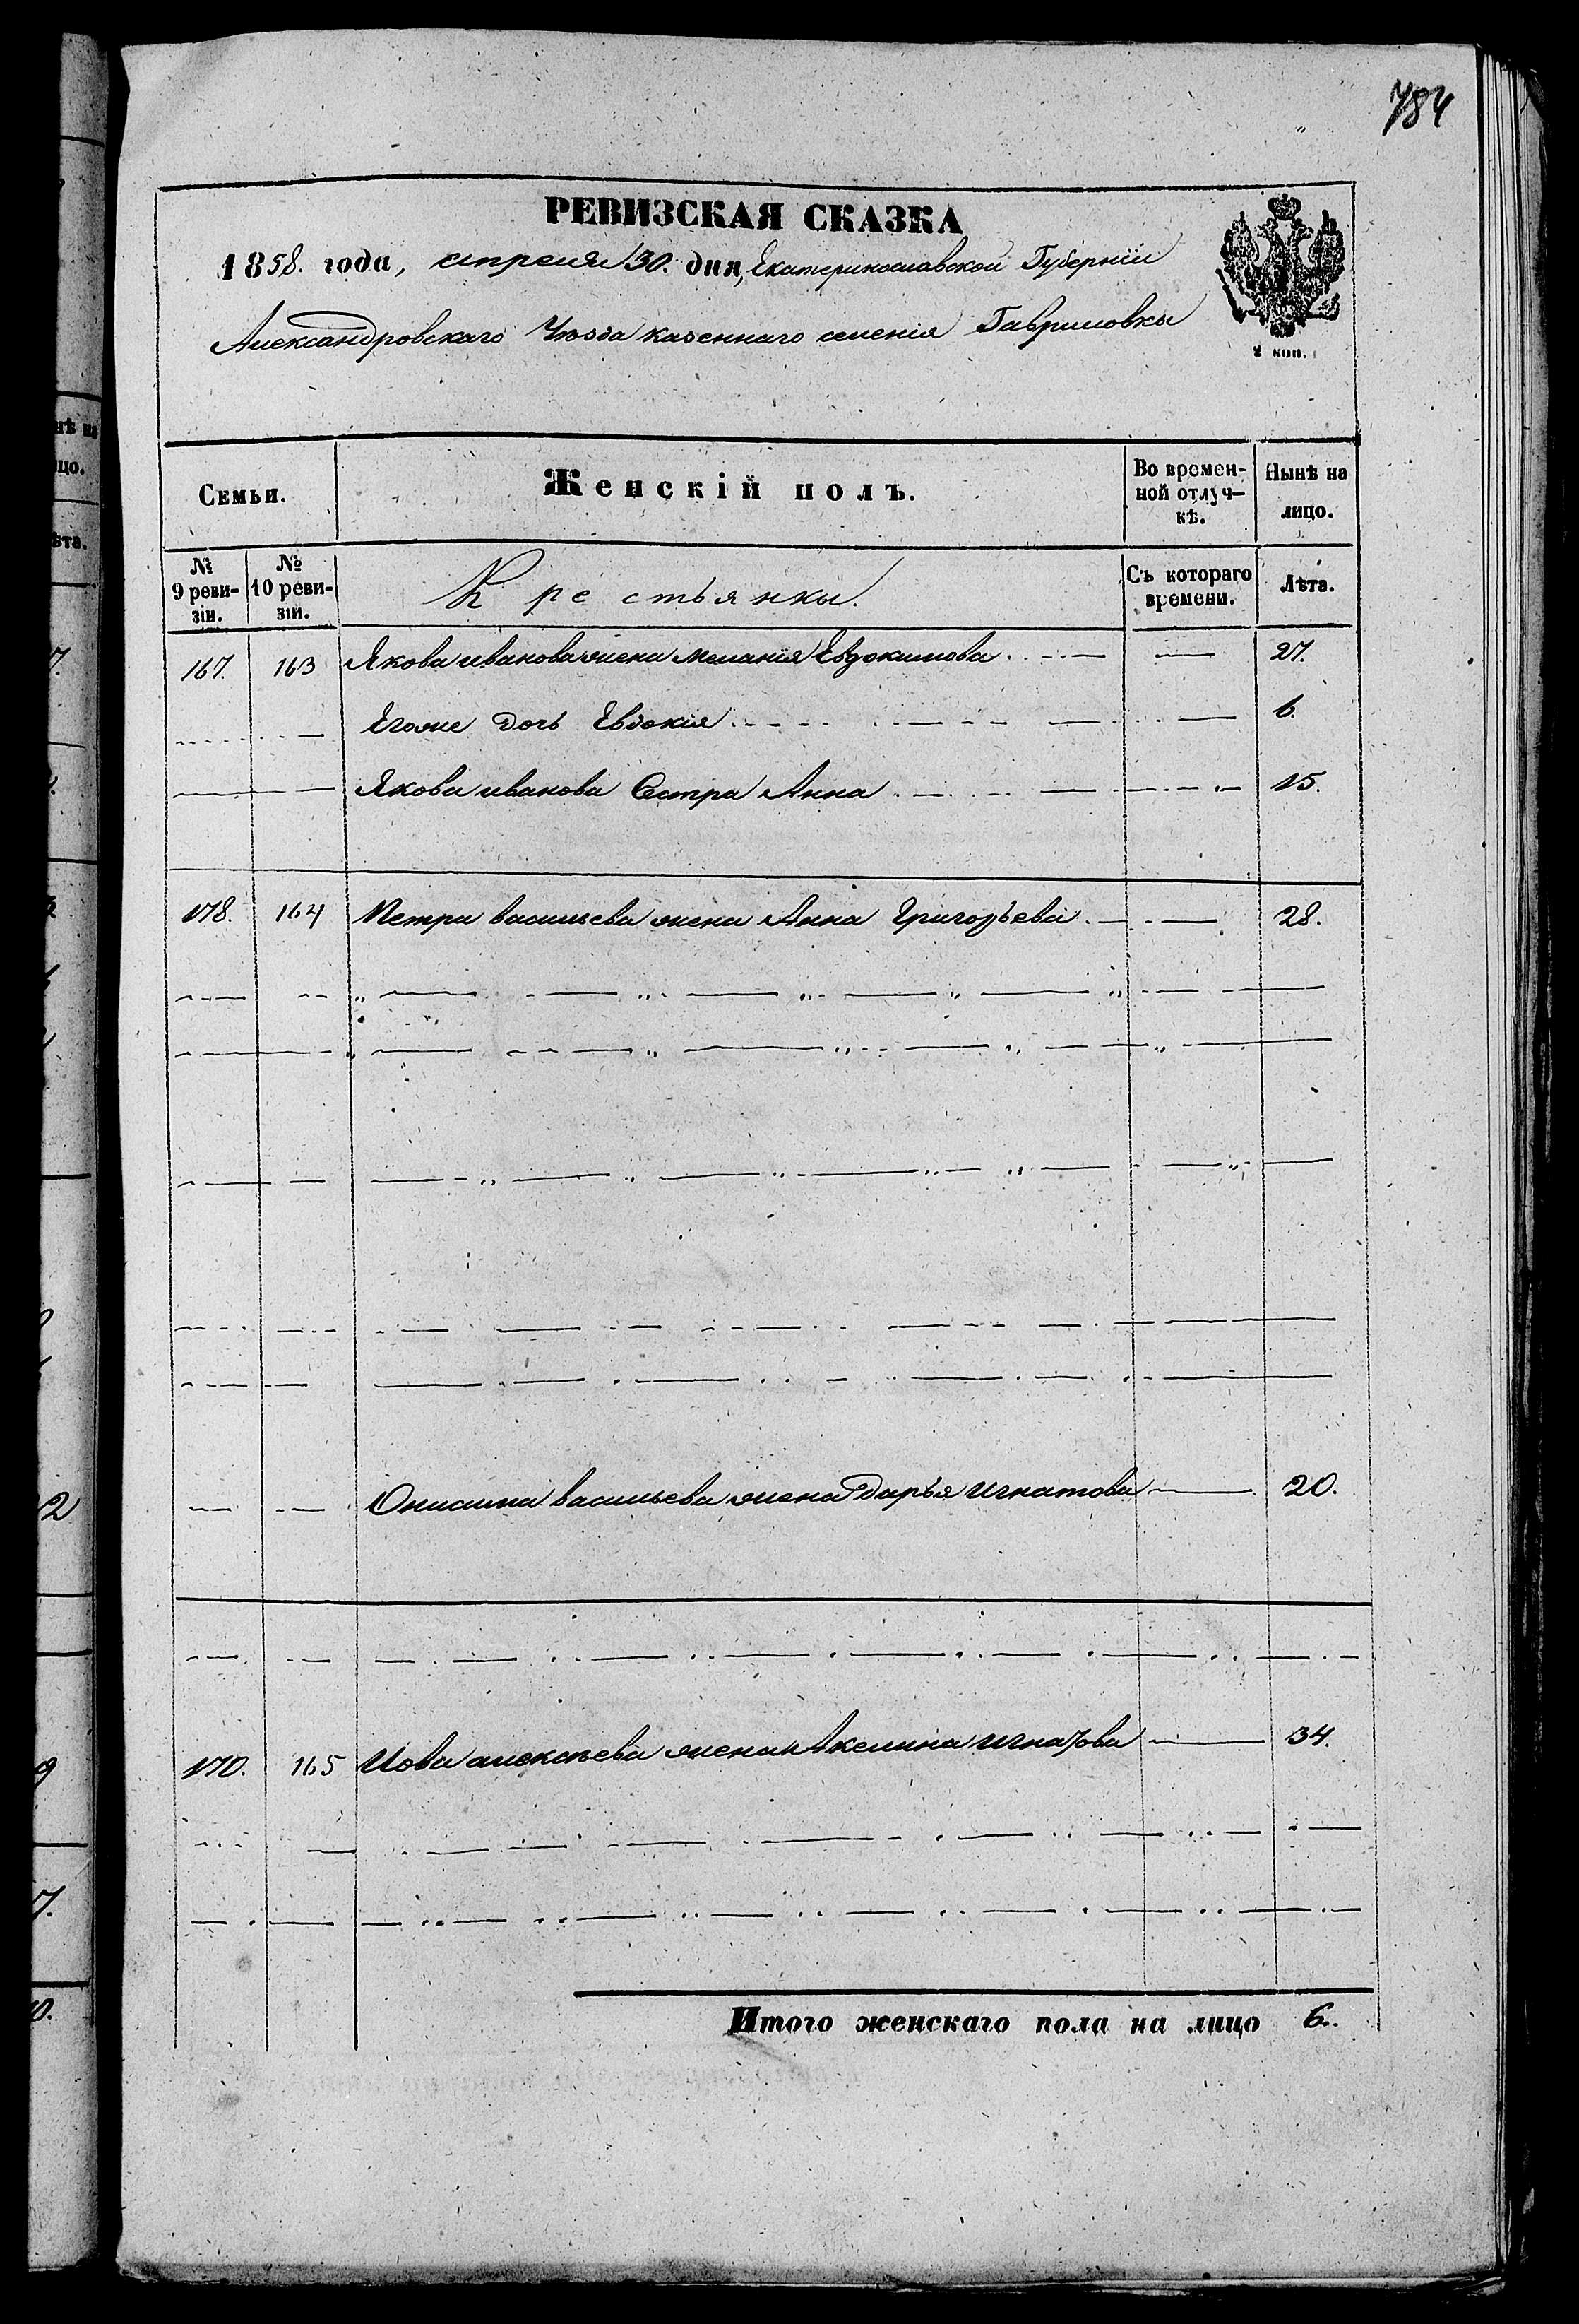 784
РЕВИЗСКАЯ СКАЗКА
1858. года, апреля 30. дня, Екатеринославской Губерніи
Александровскаго Уѣзда казеннаго селенія Гавриловки
2 коп.
Семьи.
Женскій полъ.
Во времен-
ной отлуч-
кѣ.
Нынѣ на
лицо.
№ 9 реви-
зіи.
№ 10 реви-
зіи.
Крестьянки.
Съ котораго
времени.
Лѣта.
167. 163 Якова иванова жена меланія Евдокимова 27.
Егоже дочь Евдокія 6.
Якова иванова Сестра Анна 15.
178. 164 Петра васильева жена Анна Григорьева 28.
Онисима васильева жена Дарья игнатова 20.
170. 165 Иова алексѣева жена Акелина игнатова 34.
Итого женскаго пола на лицо 6.